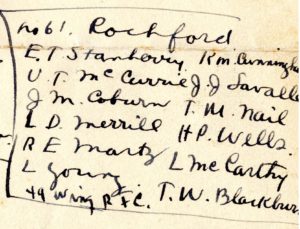 no 61. Rochford
E. T Stanbovry R m. Cunningha
V. T. McCurrie J. J Lavalle
J M. Coburn T. M. Nail
L D. Merrill H P. Wells.
R E Martz L McCarthy
L Young T. W. Blackbur
44 Wing R F C.